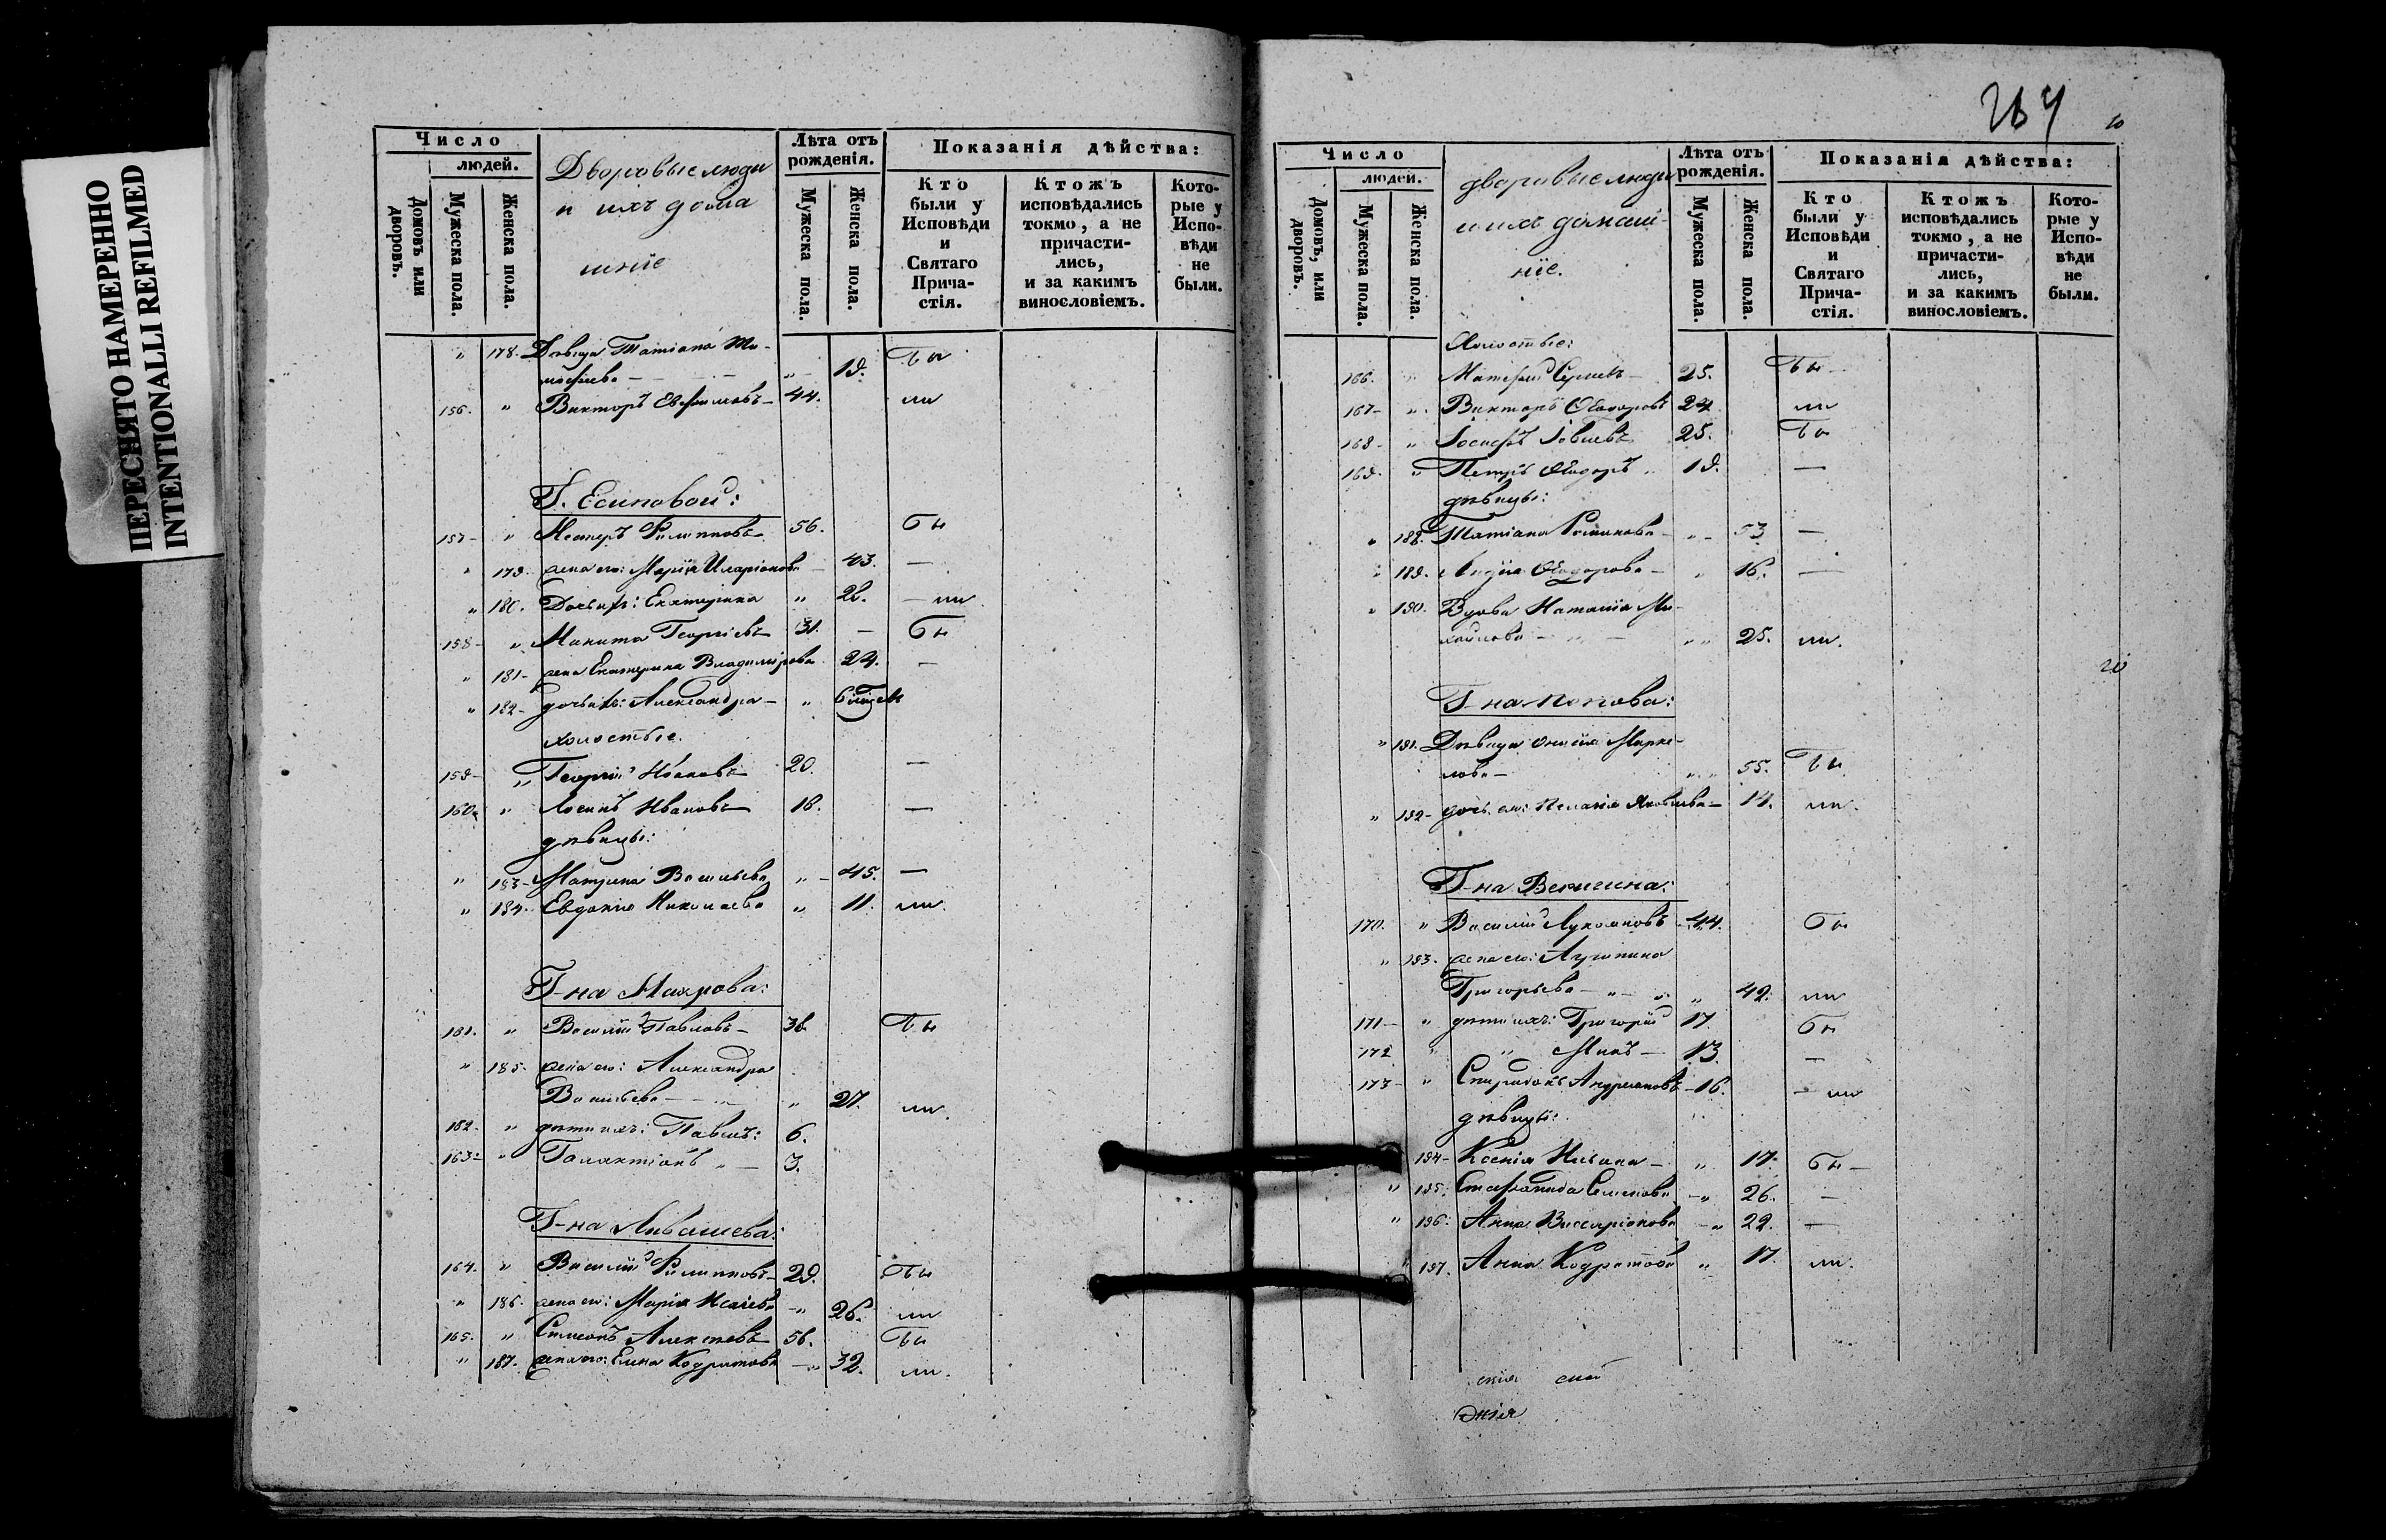 ПЕРЕСНЯТО НАМЕРЕННО
INTENTIONALLI REFILMED
Число
людей.
Домовъ или дворовъ.
Мужеска пола.
Женска пола.
Дворовые люди
и ихъ дома
шніе
Лѣта отъ рожденія.
Мужеска пола.
Женска пола.
Показанія дѣйства:
Кто были у Исповѣди и Святаго Причастія.
Ктожъ исповѣдались токмо, а не причастились, и за какимъ винословіемъ.
Которые у Исповѣди не были.
" 178. Дѣвица Татіана Ти-
мофѣева — " — 19. бы
156. " Викторъ Евфимовъ — 44. ли
Г. Есиповой:
157 — " Несторъ Филипповъ 56. бы
" 179. жена его: Марія Иларіонова — 43. —
" 180. Дочь ихъ: Екатерина " 22. — ли
158 — " Никита Георгіевъ 31. — бы
" 181 — жена Екатерина Владимірова 24. —
" 182 — дочь ихъ: Александра — " 6 мѣсяц
холостые.
159 — " Георгій Ивановъ 20. —
160. " Іосифъ Ивановъ 18. —
дѣвицы:
" 183 — Матрона Васильева " — 45. —
" 184. Евдокія Николаева " 11. ли.
Г-на Махрова:
161. " Василій Павловъ — 36. бы
" 185. жена его: Александра
Васильева — " 27. ли.
162. " дѣти ихъ: Павелъ: 6.
163 " Галактіонъ " — 3.
Г-на Ливашева:
164. " Василій Филипповъ — 29. бы
" 186. жена его: Марія Исаіева — " 26. ли
165. " Симеонъ Алексѣевъ 56. бы
" 187. жена его: Елена Кодратова — " 32. ли.
264
10
Число
людей.
Домовъ, или дворовъ.
Мужеска пола.
Женска пола.
дворовые люди
и ихъ домаш-
ніе.
Лѣта отъ рожденія.
Мужеска пола.
Женска пола.
Показанія дѣйства:
Кто были у Исповѣди и Святаго Причастія.
Ктожъ исповѣдались токмо, а не причастились, и за какимъ винословіемъ.
Которые у Исповѣди не были.
Холостые:
166. " Матѳей — 25. бы —
167 — " Викторъ Ѳеодоровъ 24. ли
168 — " Іосифъ Іовлевъ 25. бы
169. " Петръ Ѳеодоръ " 19. —
дѣвицы:
" 188. Татіана Романова — " — 53 —
" 189. Лидія Ѳеодорова — " 16. —
" 190. Вдова Наталія Ми-
хайлова — " — " " 25. ли.
Г-на Попова:
" 191. Дѣвица Марке-
лова — " " 55. бы
" 192 — дочь ея: Пелагія Яковлева — 14. ли.
20
Г-на Веригина:
170. " Василій Лукояновъ — 44. бы
" 193. жена его: Агрипина
Григорьева — " — " " 42. ли
171 — " дѣти ихъ: Григорій 17. бы
172 " " Минъ — 13. —
173 — " Спиридонъ Андреяновъ — 16. — ли
дѣвицы:
194 — Ксенія — " 17. бы —
" 195. Стефанида Семенова — " 26. —
" 196. Анна Виссаріонова — " 22. —
" 197. Анна Кодратова " 17. ли.